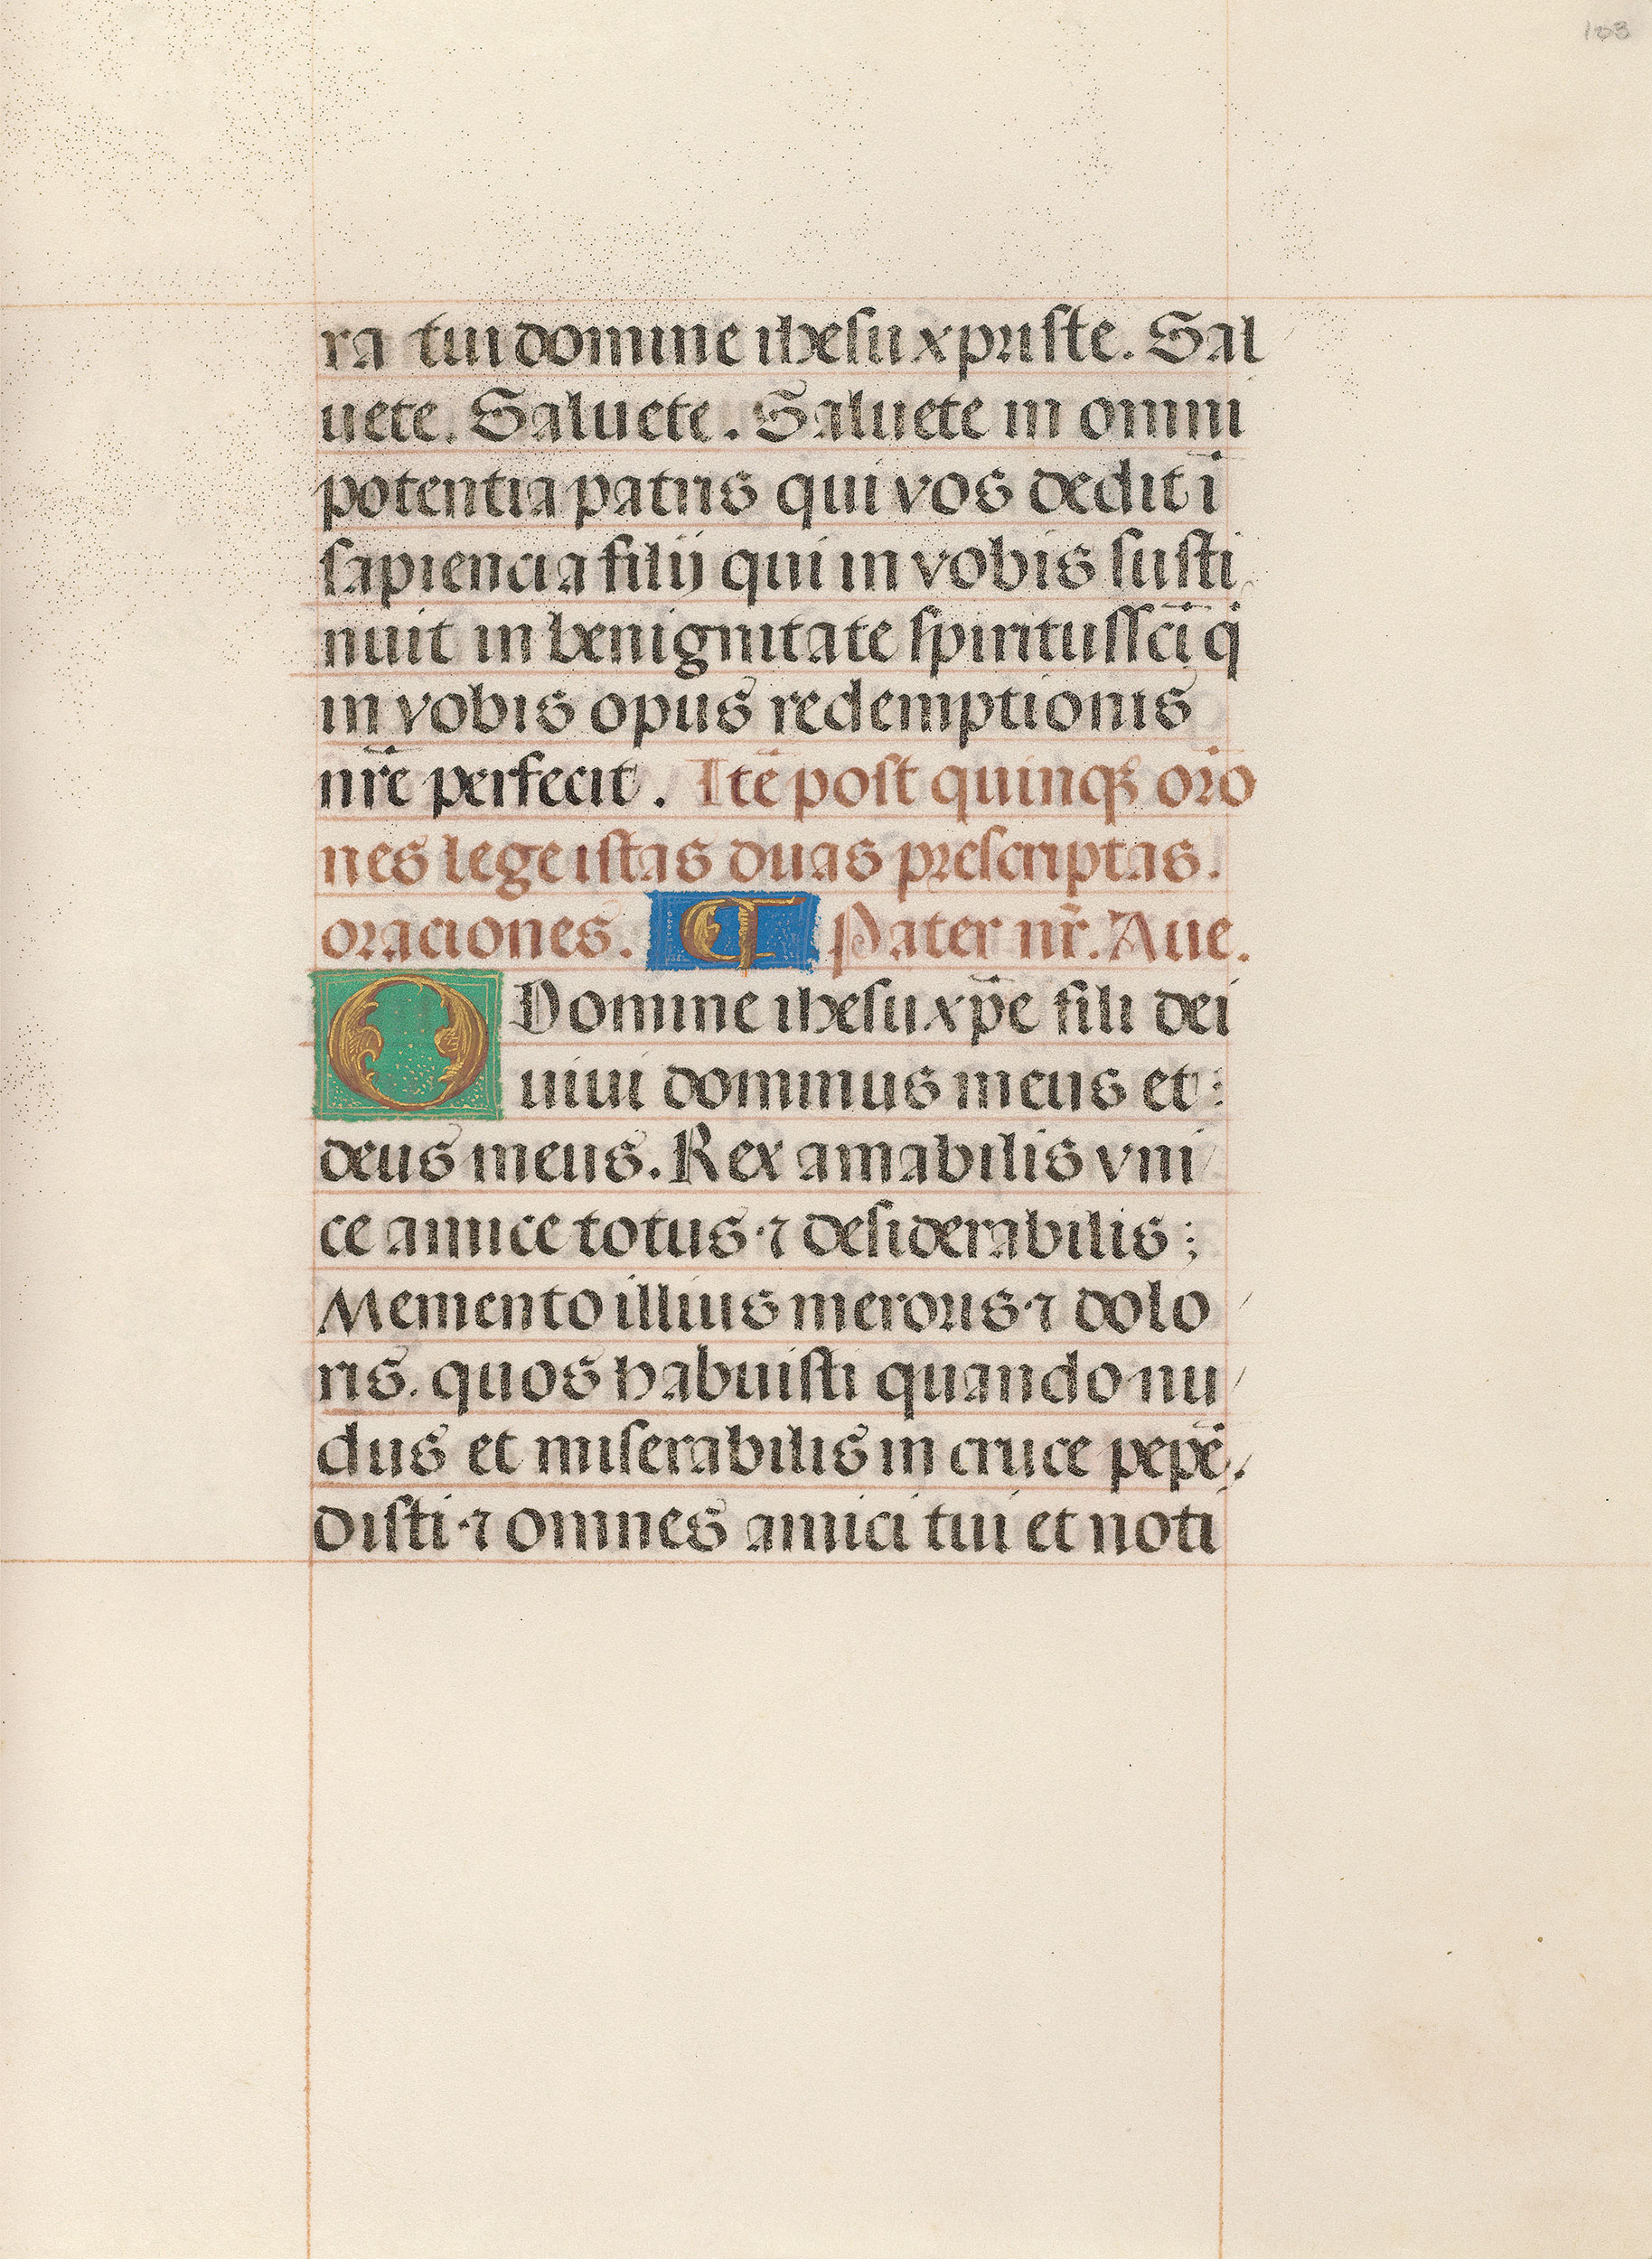 103
ra tui domine ihesu xpriste. Sal
uete. Saluete. Saluete in omni
potentia patris qui vos dedit ī
sapiencia filij qui in vobis susti
nuit in benignitate spiritussc̄i q̄
in vobis opus redemptionis
nr̄e perfecit. Itē post quinqꝫ or̄o
nes lege istas duas prescriptas.
oraciones. ¶ Pater nr̄. Aue.
O Domine ihesu xp̄e fili dei
uiui dominus meus et :
deus meus. Rex amabilis vni
ce amice totus ⁊ desiderabilis ;
Memento illius meroris ⁊ dolo
ris. quos habuisti quando nu
dus et miserabilis in cruce pepē
disti ⁊ omnes amici tui et noti